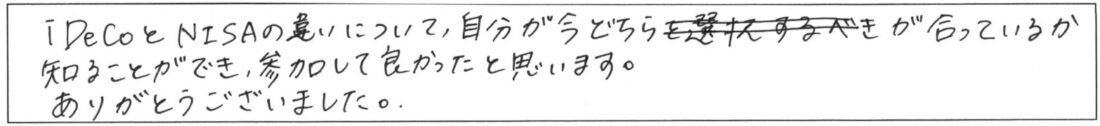 iDeCoとNISAの違いについて，自分が今どちらが合っているか
知ることができ，参加して良かったと思います。
ありがとうございました。